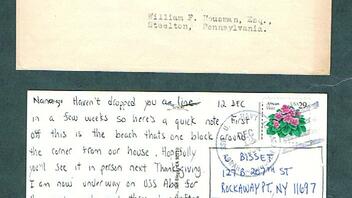 William F. Housman, Esq.,
Steelton, Pennsylvania.
Nanangi Haven't dropped you a line 12 DEC
in a few weeks so here's a quick note. First
off this is the beach thats one block around
the corner from our house. Hopefully
you'll see it in person next Thanksgiving.
I am now underway on USS Abe for
African
Violet
USA 29
DEC
BISSET
127 B 207TH ST
ROCKAWAY PT, NY 11697